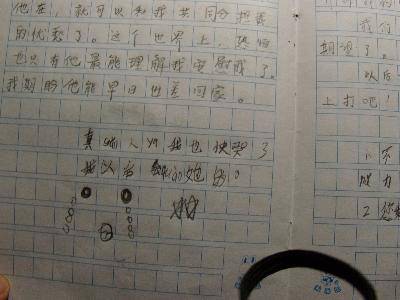 他在，就可以和我共同分担我
的忧愁了。这个世界上，恐怕
也只有他最能理解我安慰我了。
我期盼他能早日出差回家。
真 人 我也快哭了
我以为 的
我们
期望了。
以后
上打吧！
1. 不
成力
2 您